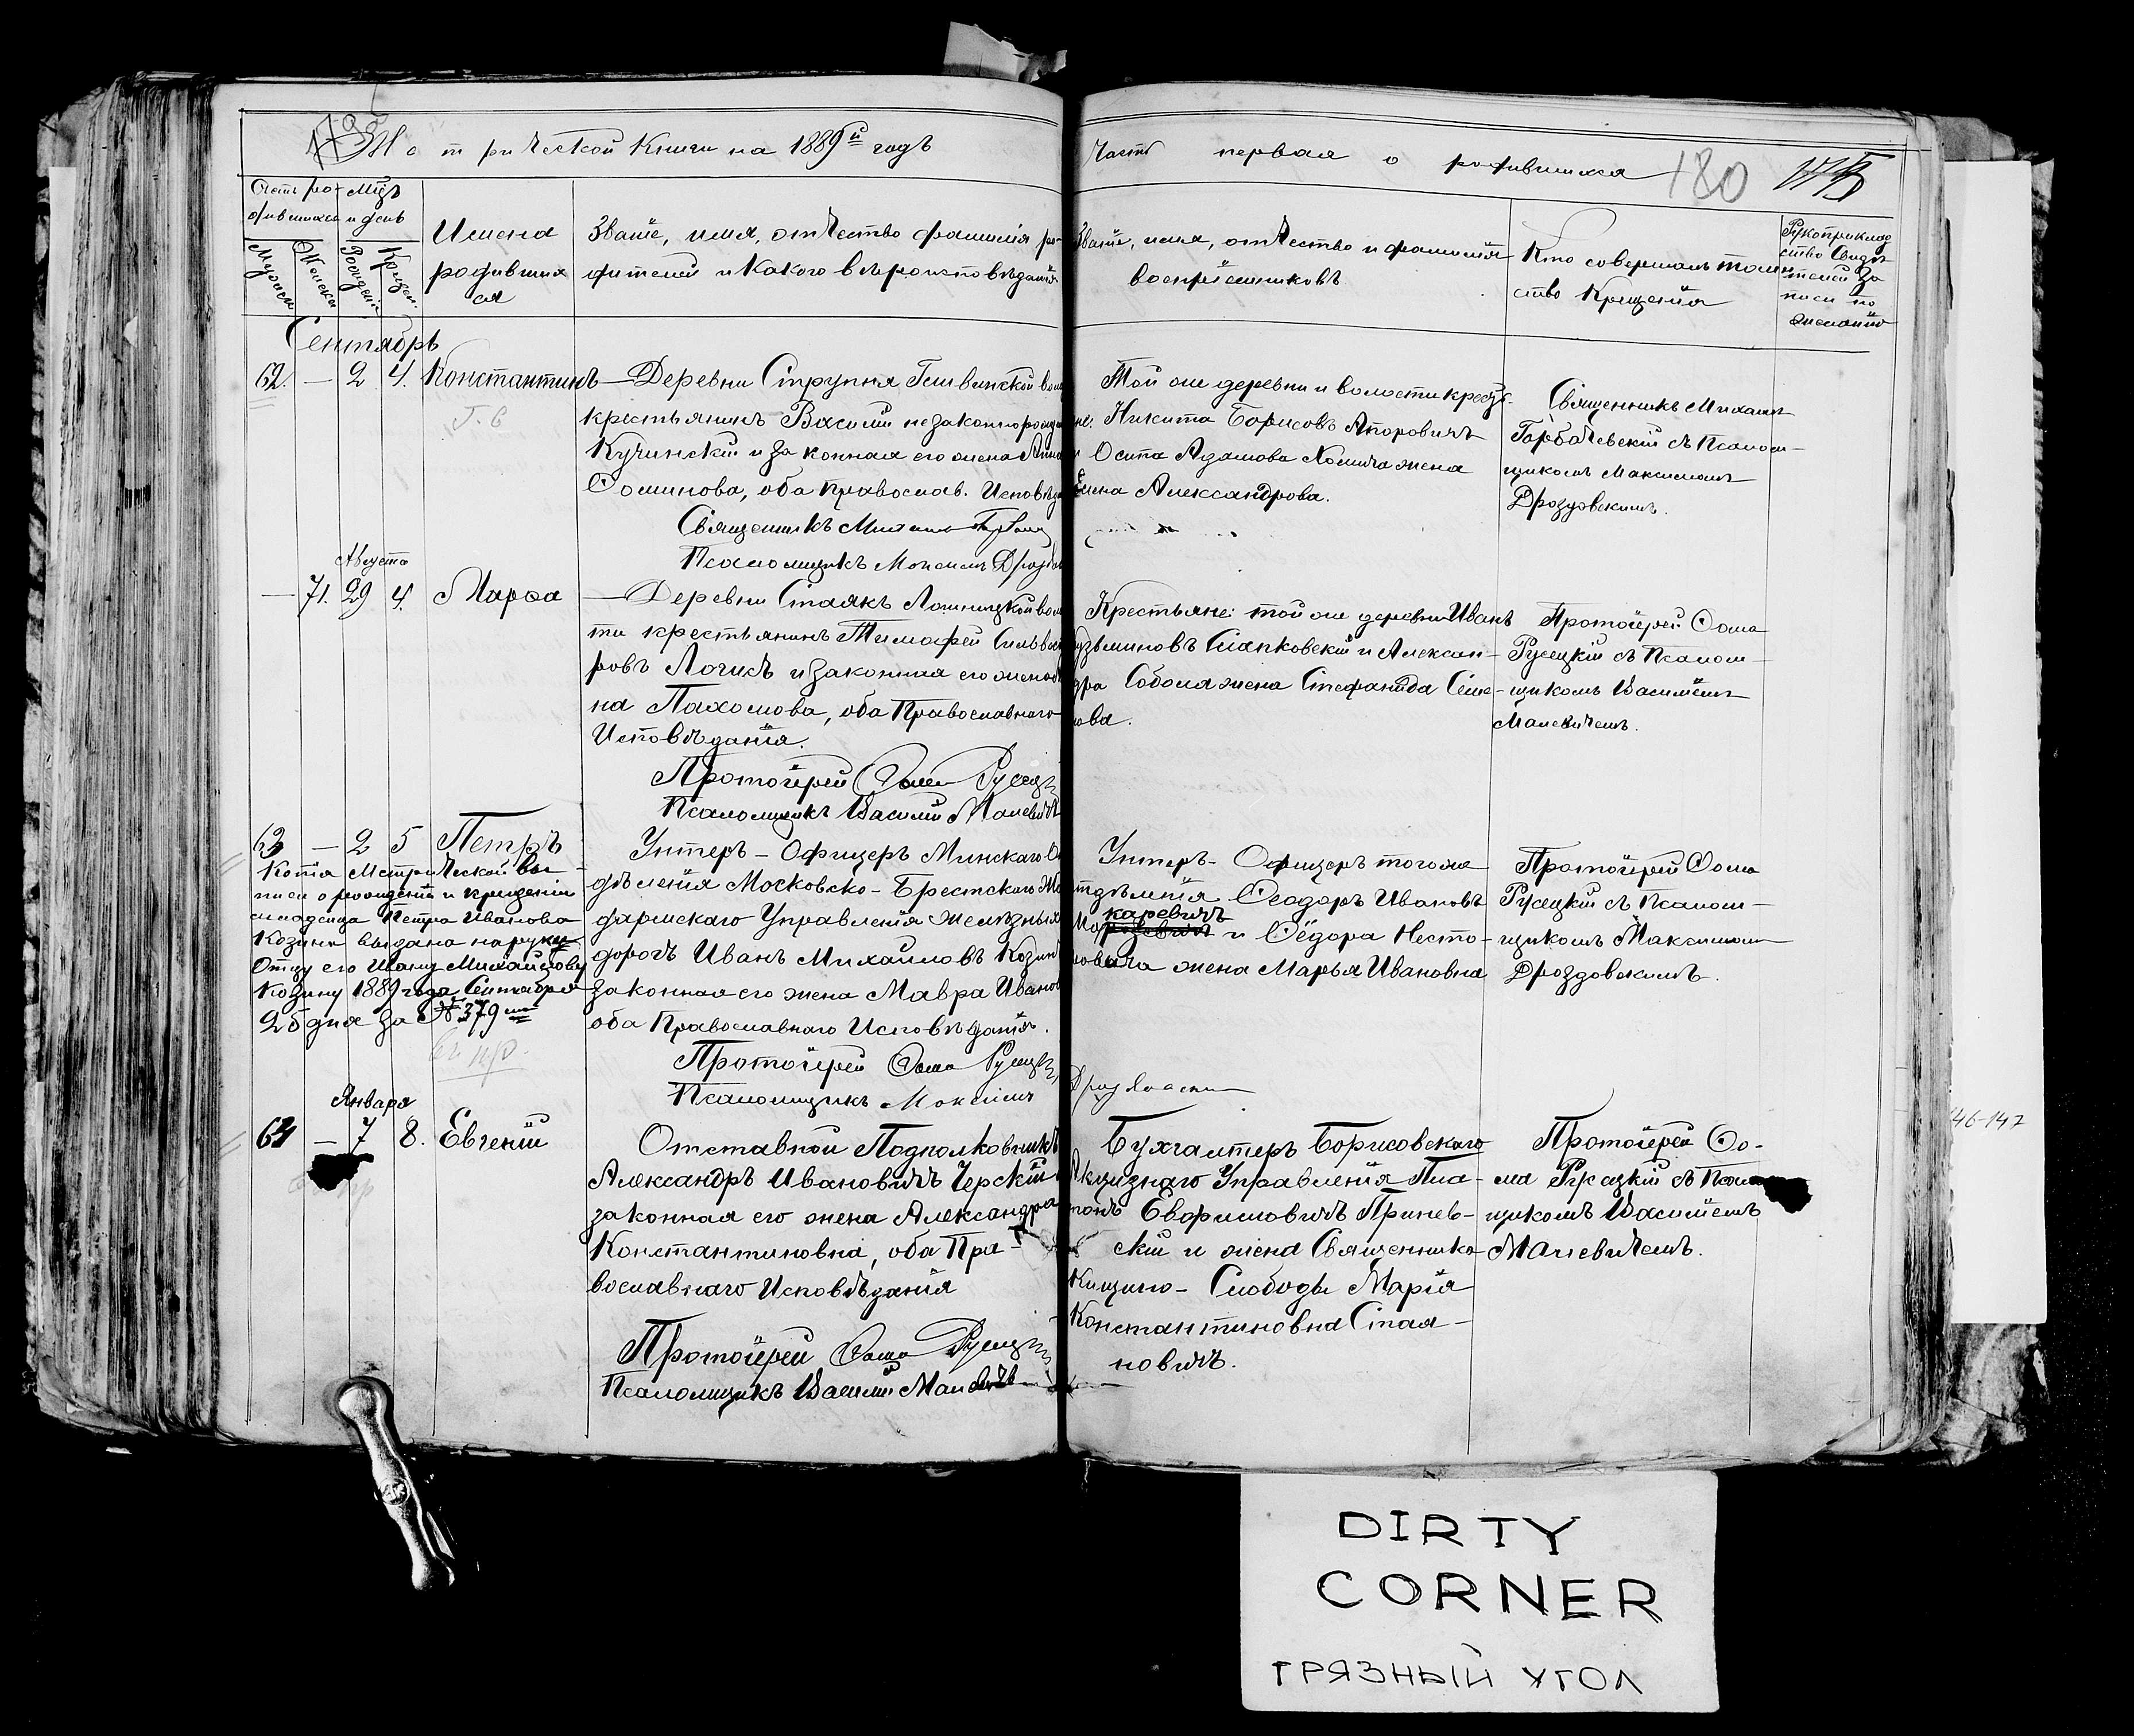 Метрической Книги на 1889й годъ
Часть первая о родившихся
180
Счетъ ро-
дившихся
Мужеск.
Женска
Мцъ
и день
Рожденія
Крещен.
Имена
родивших
ся
Званіе, имя, отчество фамилія ро-
дителей и Какого вѣроисповѣданія
Званіе, имя, отчество и фамилія
воспріемниковъ
Кто совершалъ таин
ство Крещенія
Рукоприклад
ство Свидѣ
телей за
писи по
желанію
Сентябрь
62. — 2 4. Константинъ
Деревни Струпня
крестьянинъ Василій незаконнорожд
Кучинскій и законная его жена Анна
Фоминова, оба православ. Исповѣд
Священникъ Михаилъ
Псаломщикъ Максимъ Дрозд
Той же деревни и волости крест.
Никита Борисовъ
Осипа Адамова Хомича жена
Елена Александрова.
Священникъ Михаилъ
Горбачевскій съ Псалом-
щикомъ Максимомъ
Дроздовскимъ.
Августа
— 71. 29 4. Марѳа
Деревни Стаякъ Лошницкой вол
ти крестьянинъ Тимофей Сильвест
ровъ Логисъ и законная его жена
на Пахомова, оба Православнаго
Исповѣданія.
Протоіерей Ѳома Русецк
Псаломщикъ Василій Малевичъ
Крестьяне: той же деревни Иванъ
Кузьминовъ и Алексан-
дра Соболя жена Стефанида Семе-
нова.
Протоіерей Ѳома
Русецкій съ Псалом-
щикомъ Василіемъ
Малевичемъ.
63 — 2 5 Петръ
Копія Метрической вы-
писи о рожденіи и крещеніи
младенца Петра Иванова
Козина выдана на руки
Отцу его Ивану Михайлову
Козину 1889 года Сентября
25 дня за № 379мъ
Унтеръ-Офицеръ Минскаго О
дѣленія Московско-Брестскаго Жан
дармскаго Управленія желѣзныхъ
дорогъ Иванъ Михаиловъ Козинъ
законная его жена Мавра Иванов
оба Православнаго Исповѣданія.
Протоіерей Ѳома Русецк
Псаломщикъ Максимъ
Дроздовскій
Унтеръ-Офицеръ того же
тдѣленія Ѳеодоръ Ивановъ
каревичъ
и Ѳёдора Несто-
ровича жена Марья Ивановна
Протоіерей Ѳома
Русецкій съ Псалом-
щикомъ Максимомъ
Дроздовскимъ.
Января
64 — 7 8. Евгеній
Отставной Подполковникъ
Александръ Ивановичъ Черскій
законная его жена Александра
Константиновна, оба Пра-
вославнаго Исповѣданія
Протоіерей Ѳома Русецк
Псаломщикъ Василій Малевичъ
Бухгалтеръ Борисовскаго
Акцизнаго Управленія Пла-
тонъ Евфимовичъ Принев-
скій и жена Священника
Кищино-Слободы Марія
Константиновна Стая-
новичъ.
Протоіерей Ѳо-
ма Русецкій съ Псалом
щикомъ Василіемъ
Малевичемъ.
46-147
DIRTY
CORNER
ГРЯЗНЫЙ УГОЛ